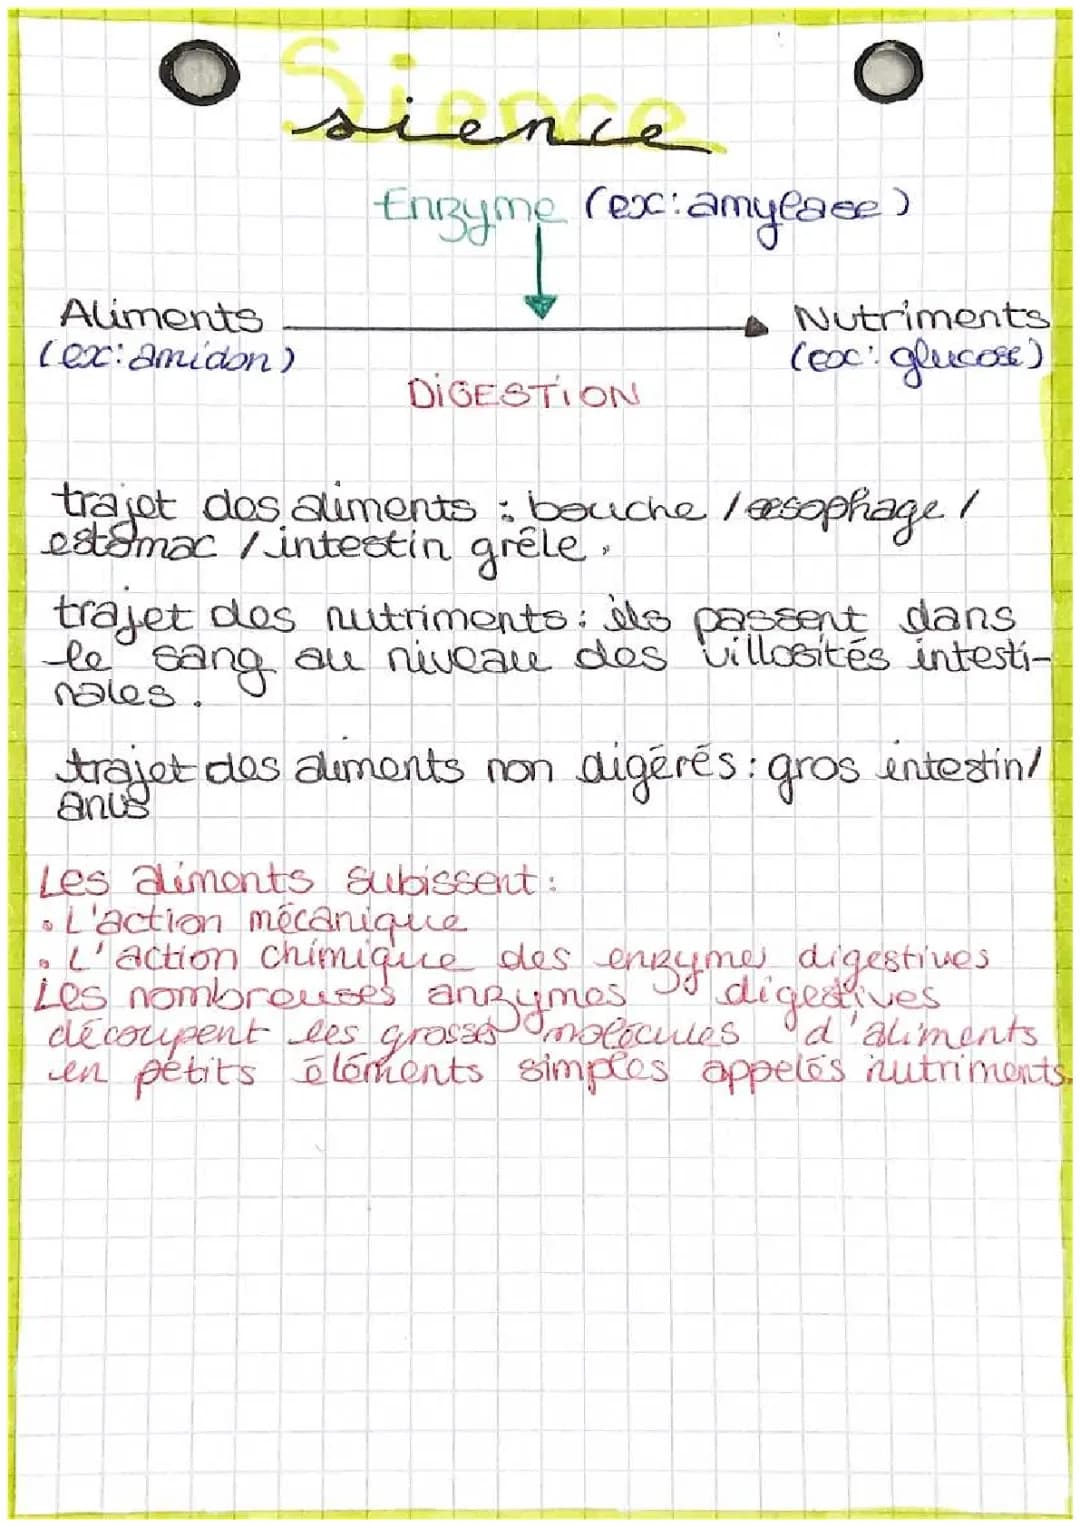 Sience
sience
Enzyme (ex: amylase)
Aliments
(ex: amidon)
Nutriments
(ex: glucose)
DIGESTION
trajet des aliments : bouche / œsophage /
estomac / intestin grêle.
trajet des nutriments : ils passent dans
le sang au niveau des villosités intesti-
nales.
trajet des aliments non digérés : gros intestin/
anus
Les aliments subissent :
• L'action mécanique
• L'action chimique des enzymes digestives
Les nombreuses anzymes digestives
découpent les grosses molécules d'aliments
en petits éléments simples appelés nutriments.